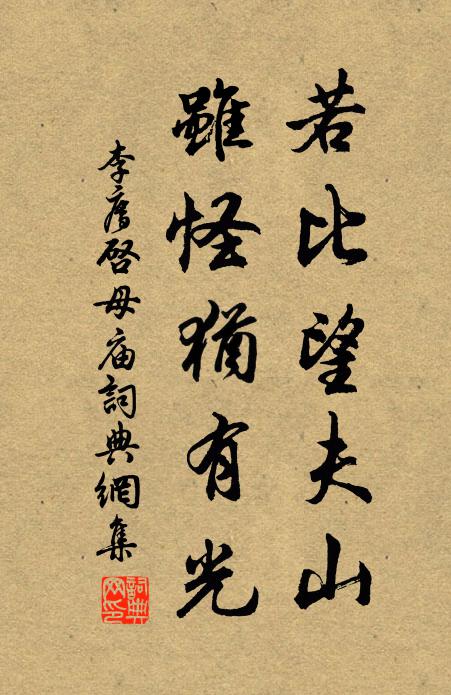 若比望夫山
雖怪猶有光
李廌啓母庙詞典網集
詞典
网印